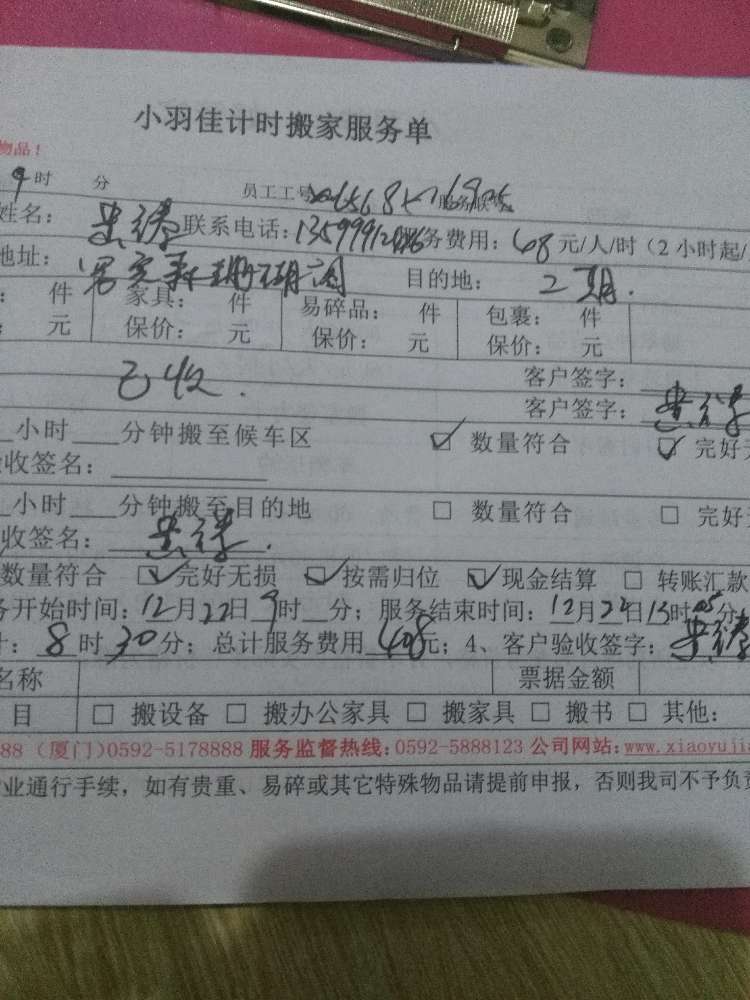 小羽佳计时搬家服务单
物品！
9时 分 员工工号
姓名： 联系电话： 务费用：68元/人/时（2小时起/
地址： 目的地：2期.
： 件 家具： 件 易碎品： 件 包裹： 件
： 元 保价： 元 保价： 元 保价： 元
客户签字：
已收. 客户签字：
小时 分钟搬至候车区 ☑ 数量符合 ☑ 完好无
收签名：
小时 分钟搬至目的地 □ 数量符合 □ 完好
收签名：
数量符合 ☑完好无损 ☑按需归位 ☑现金结算 □ 转账汇款
务开始时间：12月22日9时 分；服务结束时间：12月22日13时05分
计：8时30分；总计服务费用408元；4、客户验收签字：
名称 票据金额
目 □ 搬设备 □ 搬办公家具 □ 搬家具 □ 搬书 □ 其他：
88（厦门）0592-5178888 服务监督热线：0592-5888123 公司网站：www.xiaoyujia
业通行手续，如有贵重、易碎或其它特殊物品请提前申报，否则我司不予负责